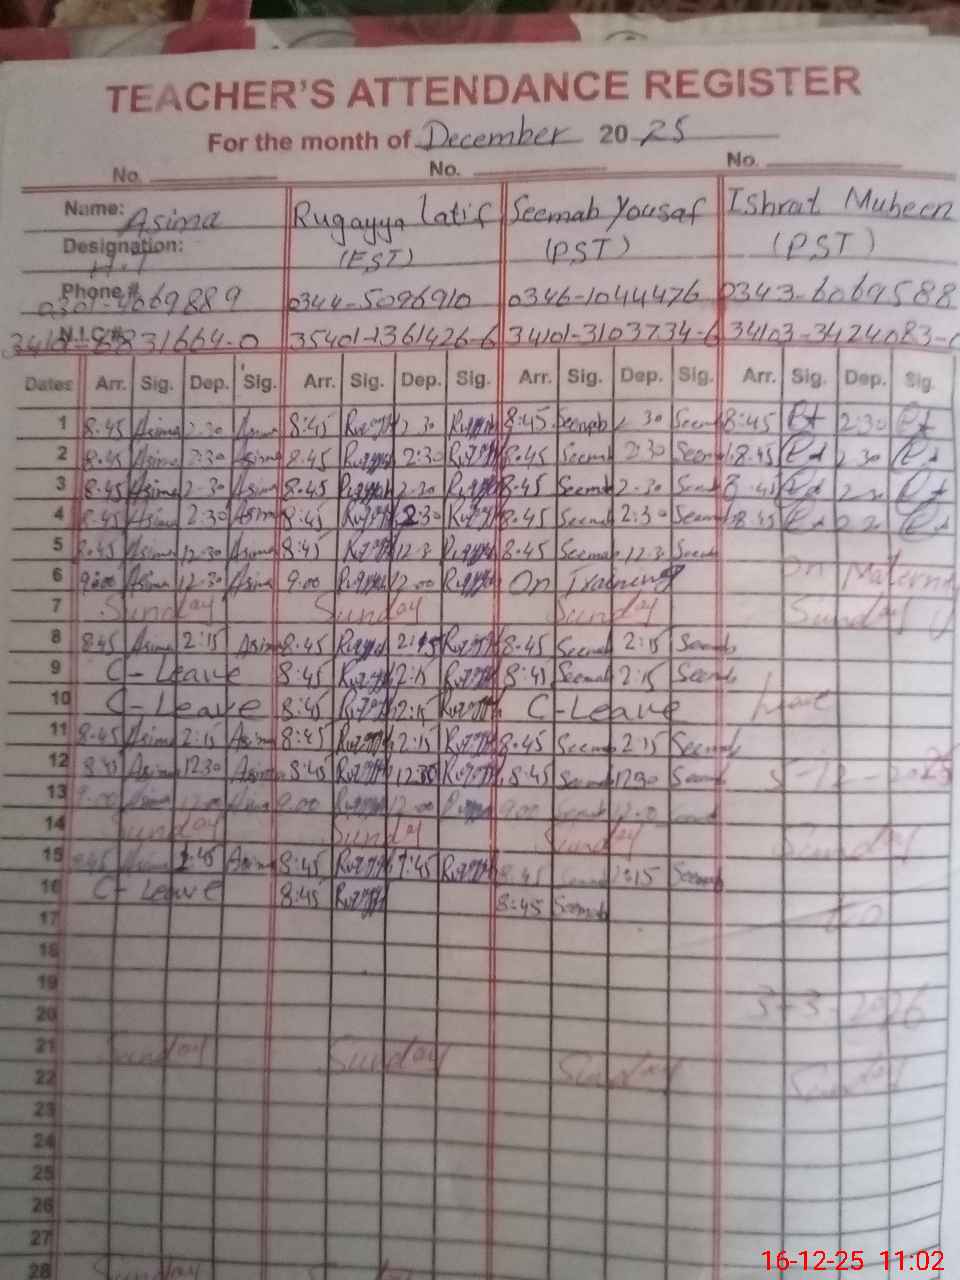 TEACHER'S ATTENDANCE REGISTER
For the month of December 20 25
No. No. No.
Name: Asima Ruqayya Latif Seemab Yousaf Ishrat Mubeen
Designation: H.T (EST) (PST) (PST)
Phone # 0344-5096910 0346-1044476 0343-6069588
N.I.C # 35401-1361426-6 34101-3103734-6 34103-3424083-
Dates Arr. Sig. Dep. Sig. Arr. Sig. Dep. Sig. Arr. Sig. Dep. Sig. Arr. Sig. Dep. Sig.
1 8:45 Asima 2:30 Asima 8:45 2:30 8:45 Seemab 2:30 Seemab 8:45 2:30
2 8:45 Asima 2:30 Asima 8:45 2:30 8:45 Seemab 2:30 Seemab 8:45 2:30
3 8:45 Asima 2:30 Asima 8:45 2:30 8:45 Seemab 2:30 Seemab 8:45
4 8:45 Asima 2:30 Asima 8:45 2:30 8:45 Seemab 2:30 Seemab 8:45
5 8:45 Asima 12:30 Asima 8:45 12:3 8:45 Seemab 12:30 Seemab
6 9:00 Asima 12:30 Asima 9:00 12:00 On Training On Maternity
7 Sunday Sunday Sunday Sunday
8 8:45 Asima 2:15 Asima 8:45 2:15 8:45 Seemab 2:15 Seemab
9 C-Leave 8:45 2:15 8:45 Seemab 2:15 Seemab
10 C-Leave 8:45 2:15 C-Leave leave
11 8:45 Asima 2:15 Asima 8:45 2:15 8:45 Seemab 2:15 Seemab
12 8:45 Asima 12:30 Asima 8:45 12:30 8:45 Seemab 12:30 Seemab 5-12-2025
13 9:00 Asima 12:00 Asima 9:00 12:00 9:00 Seemab 12:0 Seemab
14 Sunday Sunday Sunday Sunday
15 8:45 Asima 1:45 Asima 8:45 1:45 8:45 Seemab Seemab
16 C-Leave 8:45 8:45 Seemab
17 to
18
19
20 3-3-2026
21 Sunday Sunday Sunday Sunday
22
23
24
25
26
27
28 Sunday Sunday
16-12-25 11:02